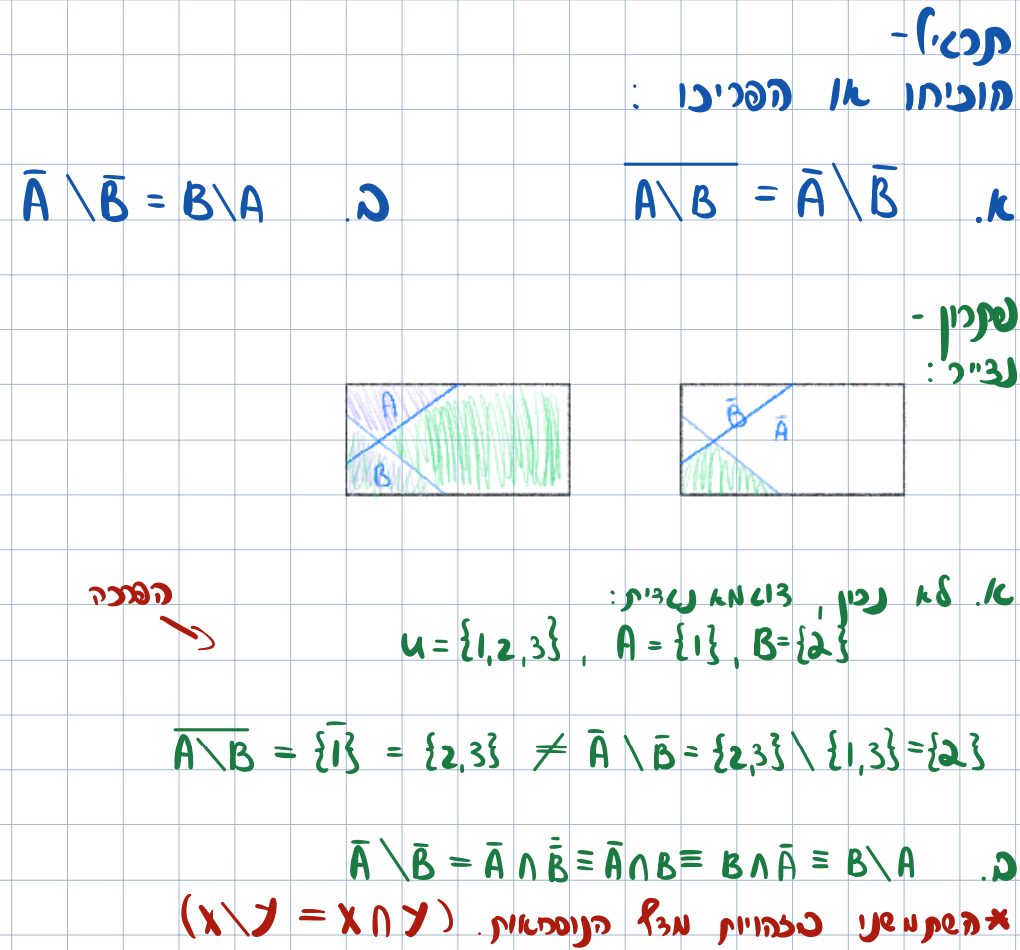 תרגיל-
הוכיחו או הפריכו :
א. $\overline{A \setminus B} = \bar{A} \setminus \bar{B}$ ב. $\bar{A} \setminus \bar{B} = B \setminus A$
פתרון -
נצייר:
A B̄ Ā
B
א. לא נכון, דוגמא נגדית:
U = {1,2,3} , A = {1} , B = {2}
הפרכה
$\overline{A \setminus B} = \overline{\{1\}} = \{2,3\} \neq \bar{A} \setminus \bar{B} = \{2,3\} \setminus \{1,3\} = \{2\}$
ב. $\bar{A} \setminus \bar{B} = \bar{A} \cap \bar{\bar{B}} \equiv \bar{A} \cap B \equiv B \cap \bar{A} \equiv B \setminus A$
*השתמשנו בזהויות מדף הנוסחאות. (x\y = x∩y)